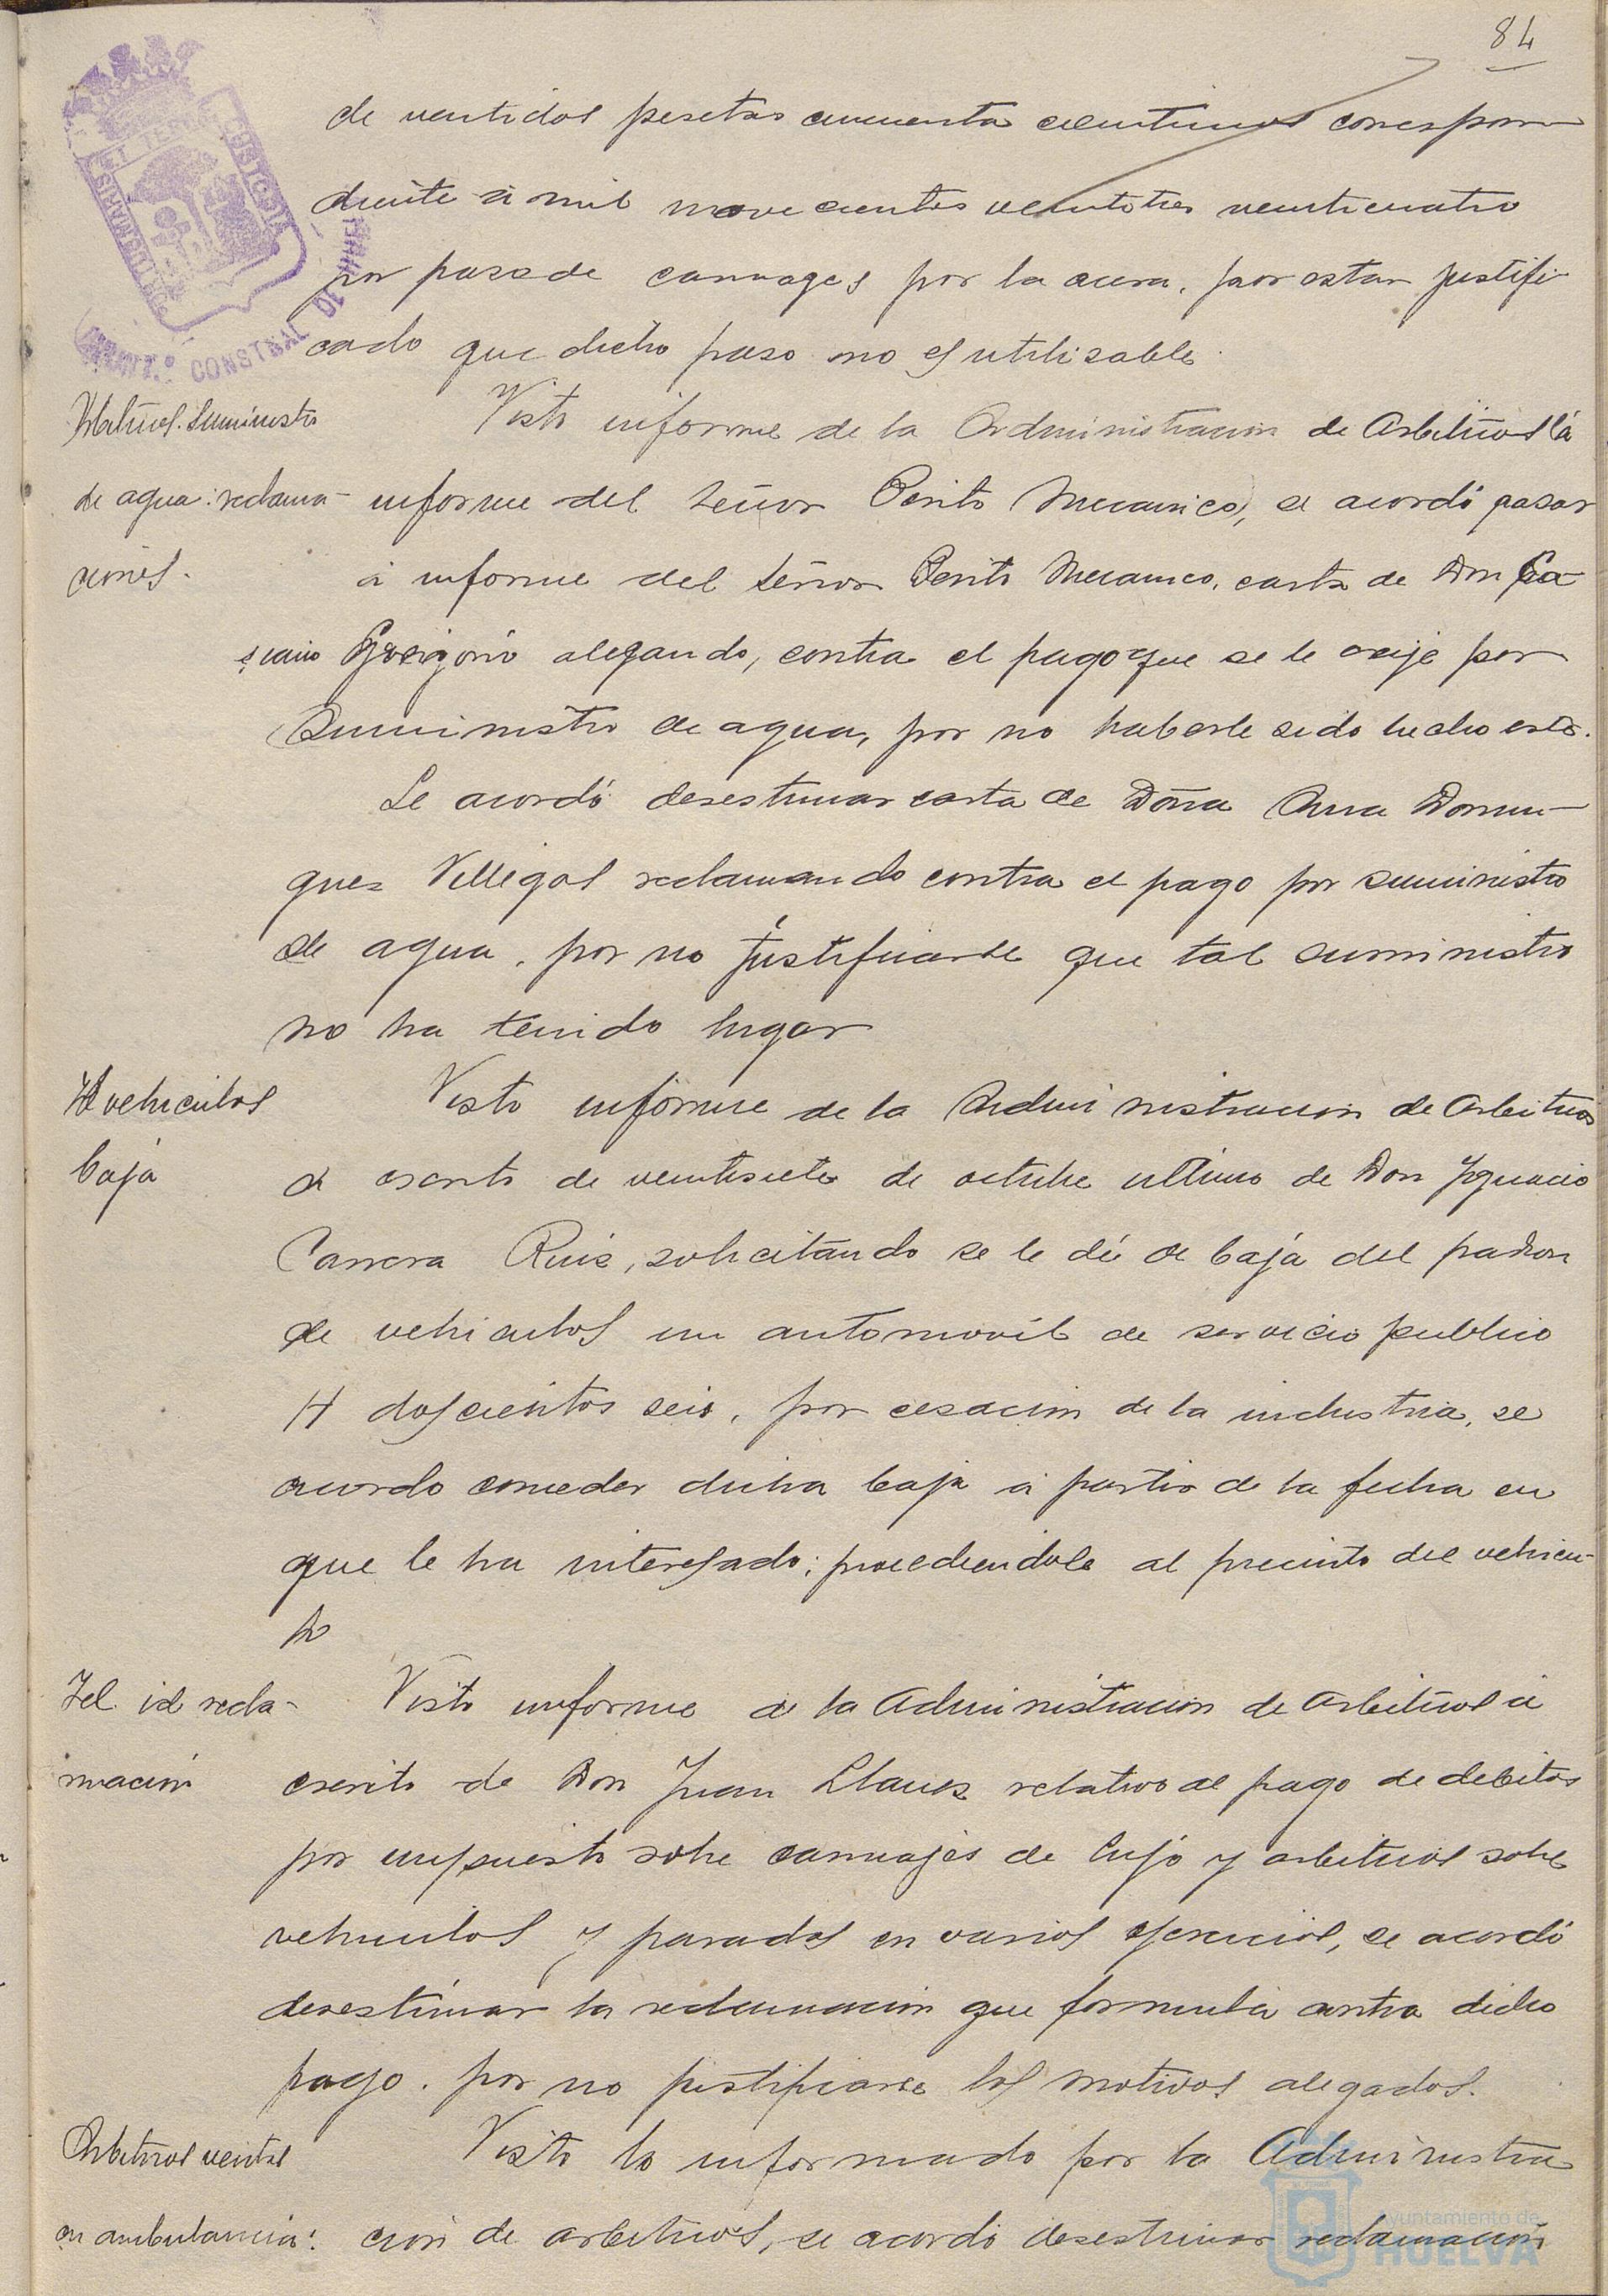 84
de ventidos pesetas cincuenta centimos correspon
diente á mil novecientos veintitres veinticuatro
por paso de carruages por la acera, por estar justifi-
cado que dicho paso no es utilisable.
Suministro
Visto informe de la Administracion de Arbitrios á
de agua: reclama-
informe del señor Perito Mecanico, se acordó pasar
ciones.
á informe del señor Perito Mecanico, carta de Don
alegando, contra el pago que se le exije por
suministro de agua, por no haberle sido hecho este.
Se acordó desestimar carta de Doña Ana Domin-
guez Villegas reclamando contra el pago por suministro
de agua, por no justificarse que tal suministro
no ha tenido lugar
Id vehiculos
Visto informe de la Administracion de Arbitrios
baja
a escrito de veintisiete de octubre ultimo de Don Ygnacio
Carrera Ruiz, solicitando se le dé de baja del padron
de vehiculos un automovil de servicio publico
H doscientos seis, por cesacion de la industria, se
acordo conceder dicha baja á partir de la fecha en
que le ha interesado; procediendole al precinto del vehicu-
lo
Id id recla-
Visto informe de la Administracion de Arbitrios á
mación
escrito de Don Juan Llanes relativo al pago de debitos
por impuesto sobre carruajes de lujo y arbitrios sobre
vehiculos y paradas en varios ejercicios, se acordó
desestimar la reclamacion que formula contra dicho
pago, por no justificarse los motivos alegados.
Arbitrios ventas
Visto lo informado por la Administra
en ambulancia:
ción de arbitrios, se acordó desestimar reclamación
Ayuntamiento de
HUELVA